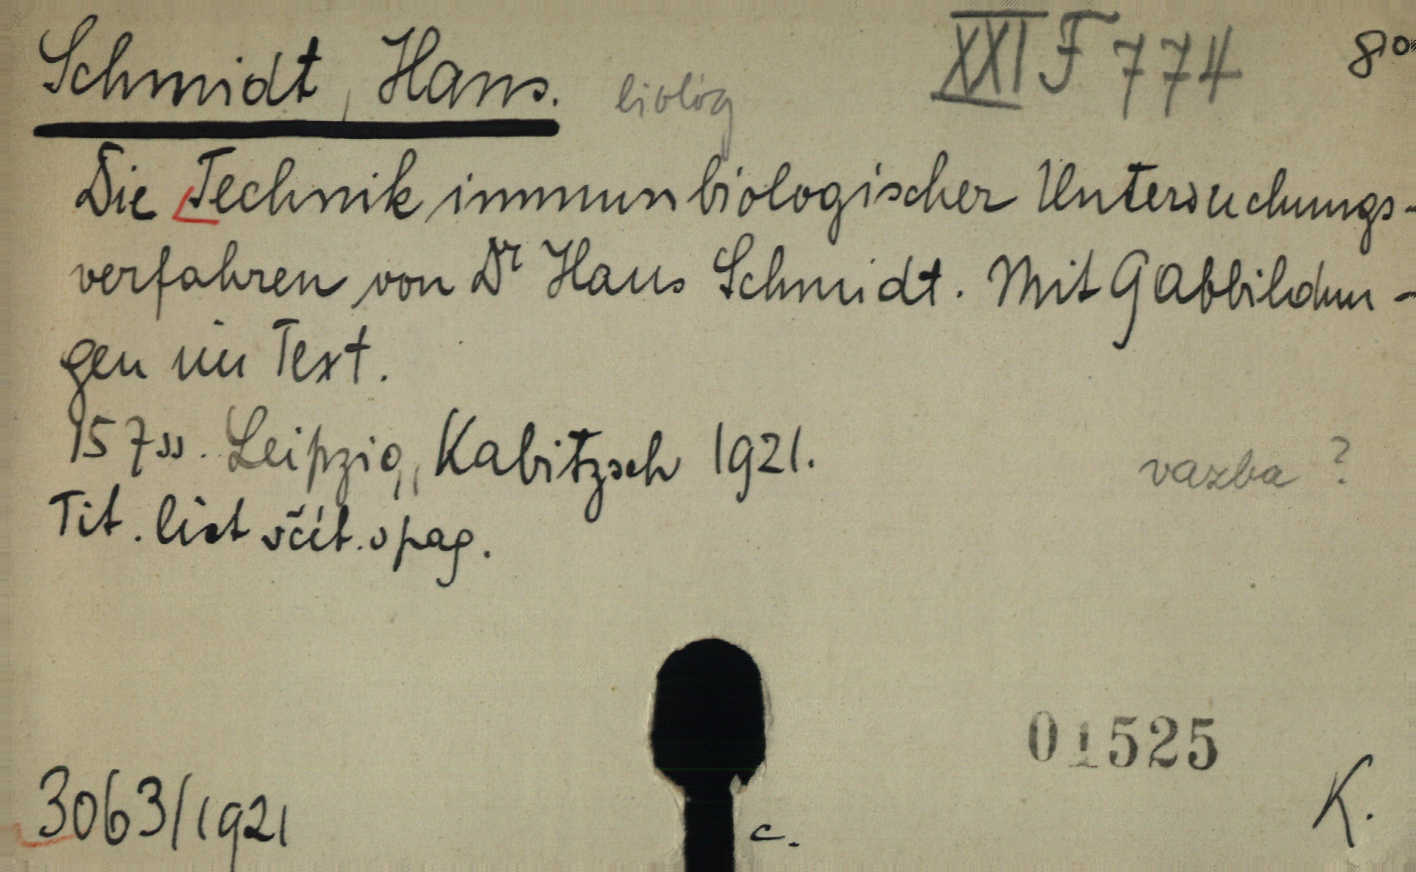 Schmidt, Hans. biolog XXI F 774 8°
Die Technik immunbiologischer Untersuchungs-
verfahren von Dr Hans Schmidt. Mit 9 Abbildun-
gen im Text.
157 ss. Leipzig, Kabitzsch 1921.
vazba ?
Tit. list včít. v pag.
01525
3063/1921
c.
K.